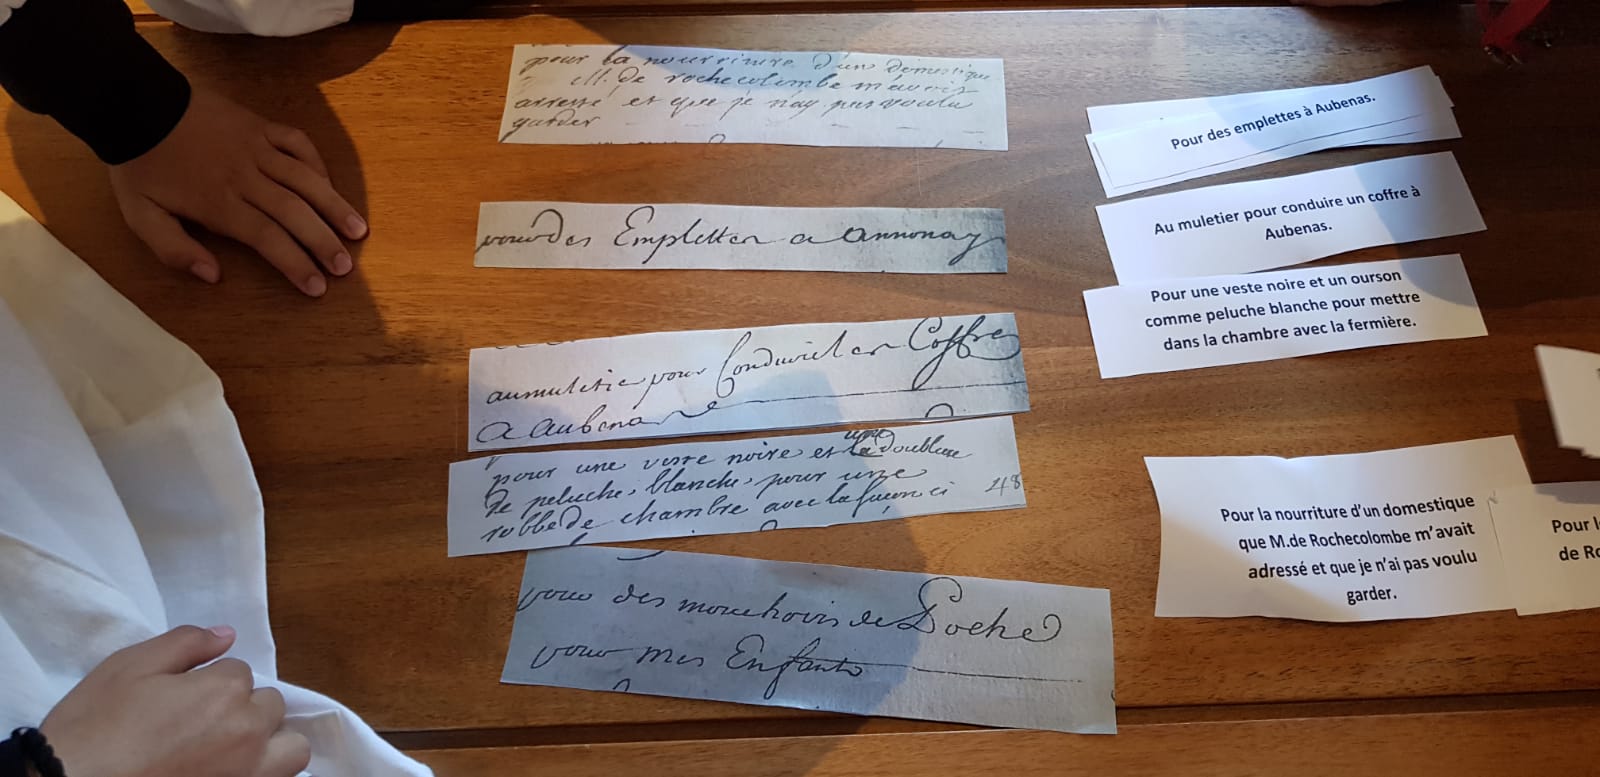 pour la nourriture d'un domestique
M. de rochecolombe m'avoit
adressé et que je n'ay pas voulu
garder
pour des Emplettes a annonay
au muletie pour Conduire un Coffre
a aubenas
pour une veste noire et la doublure
une
de peluche, blanche, pour une
robbe de chambre avec la façon ci 48
pour des mouchoirs de Poche
pour mes Enfants
Pour des emplettes à Aubenas.
Au muletier pour conduire un coffre à
Aubenas.
Pour une veste noire et un ourson
comme peluche blanche pour mettre
dans la chambre avec la fermière.
Pour la nourriture d'un domestique
que M.de Rochecolombe m'avait
adressé et que je n'ai pas voulu
garder.
Pour
de